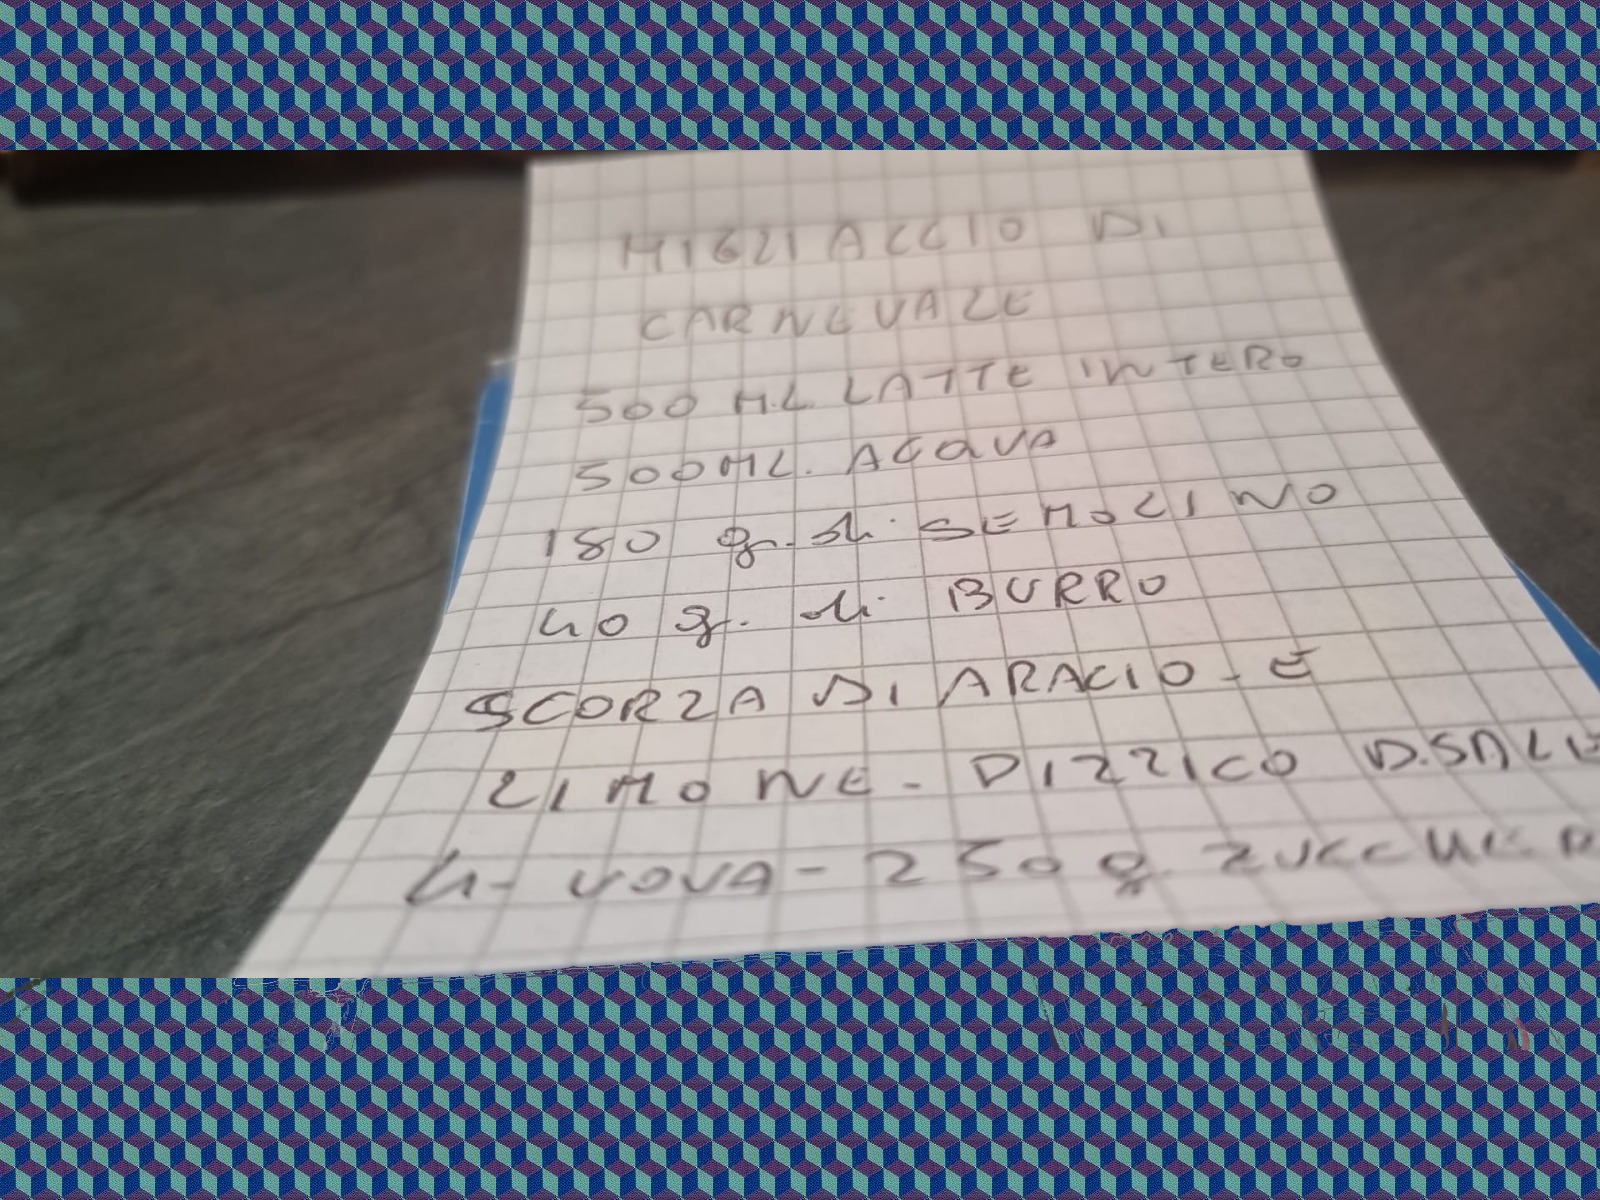 MIGLIACCIO DI
CARNEVALE
500 ML. LATTE INTERO
500 ML. ACQUA
180 gr. di SEMOLINO
40 gr. di BURRO
SCORZA DI ARACIO - E
LIMONE - PIZZICO D.SALE
4 - UOVA - 250 g. ZUCCHER